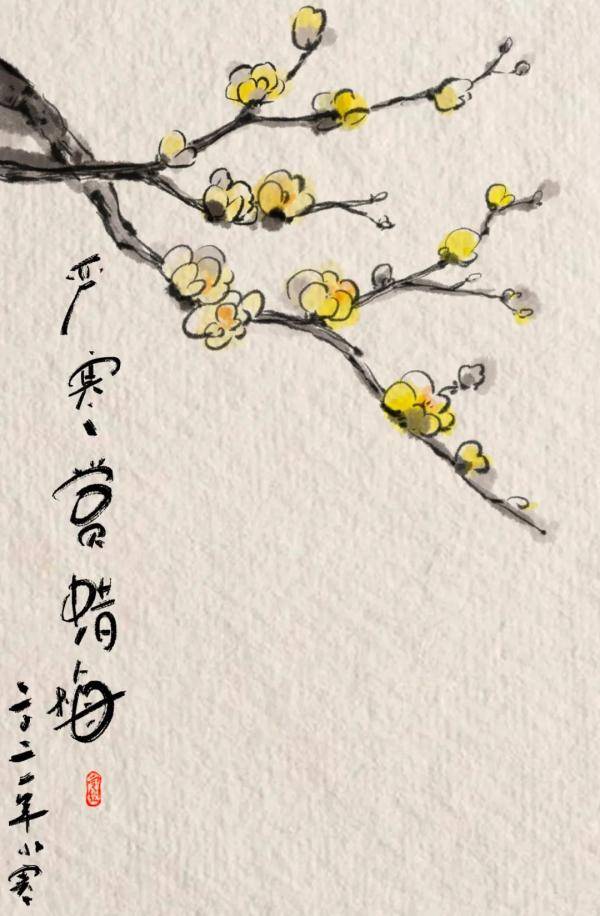 严寒赏蜡梅
二〇二一年小寒